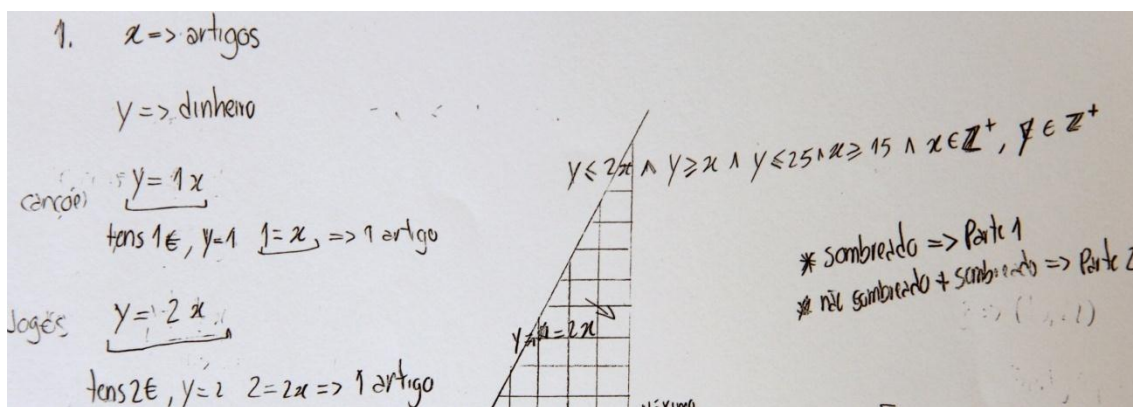 1. x => artigos
y => dinheiro
canções y = 1x
tens 1€, y=1 1=x, => 1 artigo
Jogos y = 2x
tens 2€, y=2 2=2x => 1 artigo
y ≤ 2x ∧ y ≥ x ∧ y ≤ 25 ∧ x ≥ 15 ∧ x ∈ ℤ⁺, y ∈ ℤ⁺
* sombreado => Parte 1
* não sombreado + sombreado => Parte 2
= 2x